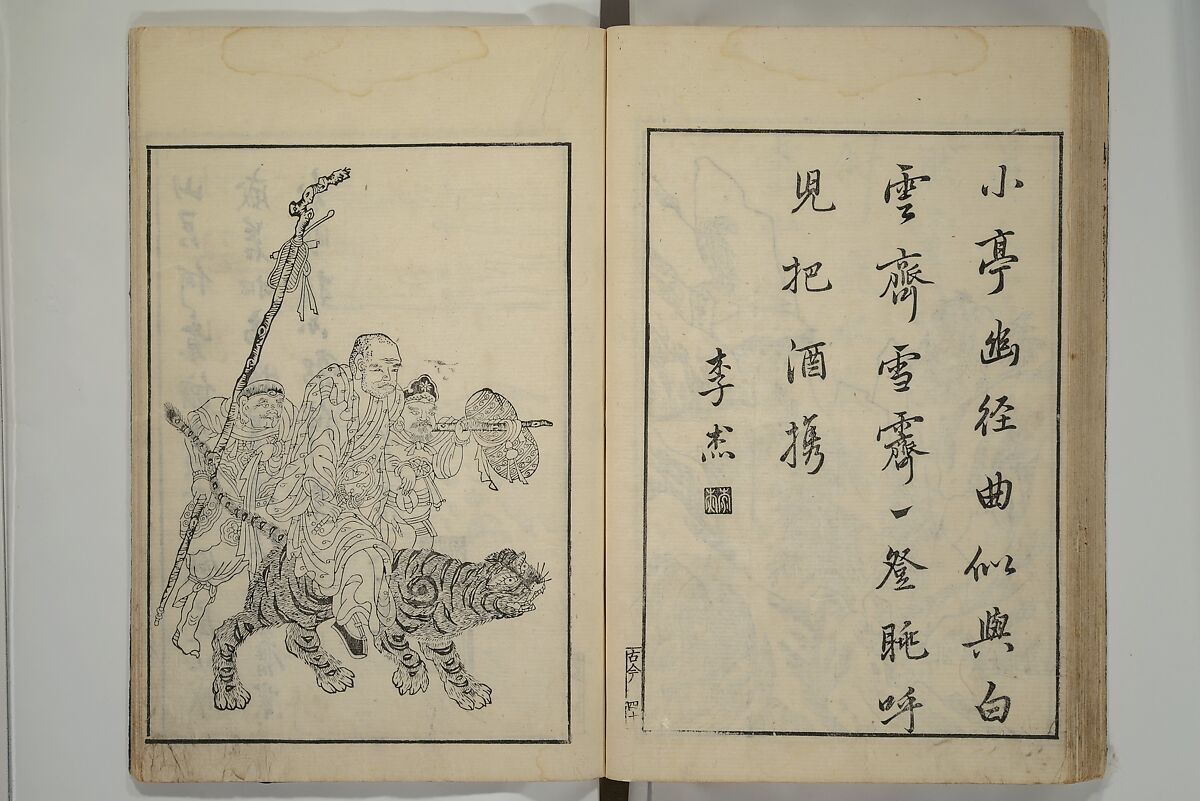 小亭幽径曲似與白
雲齊雪霽一登眺呼
児把酒携
李杰
古今
四十